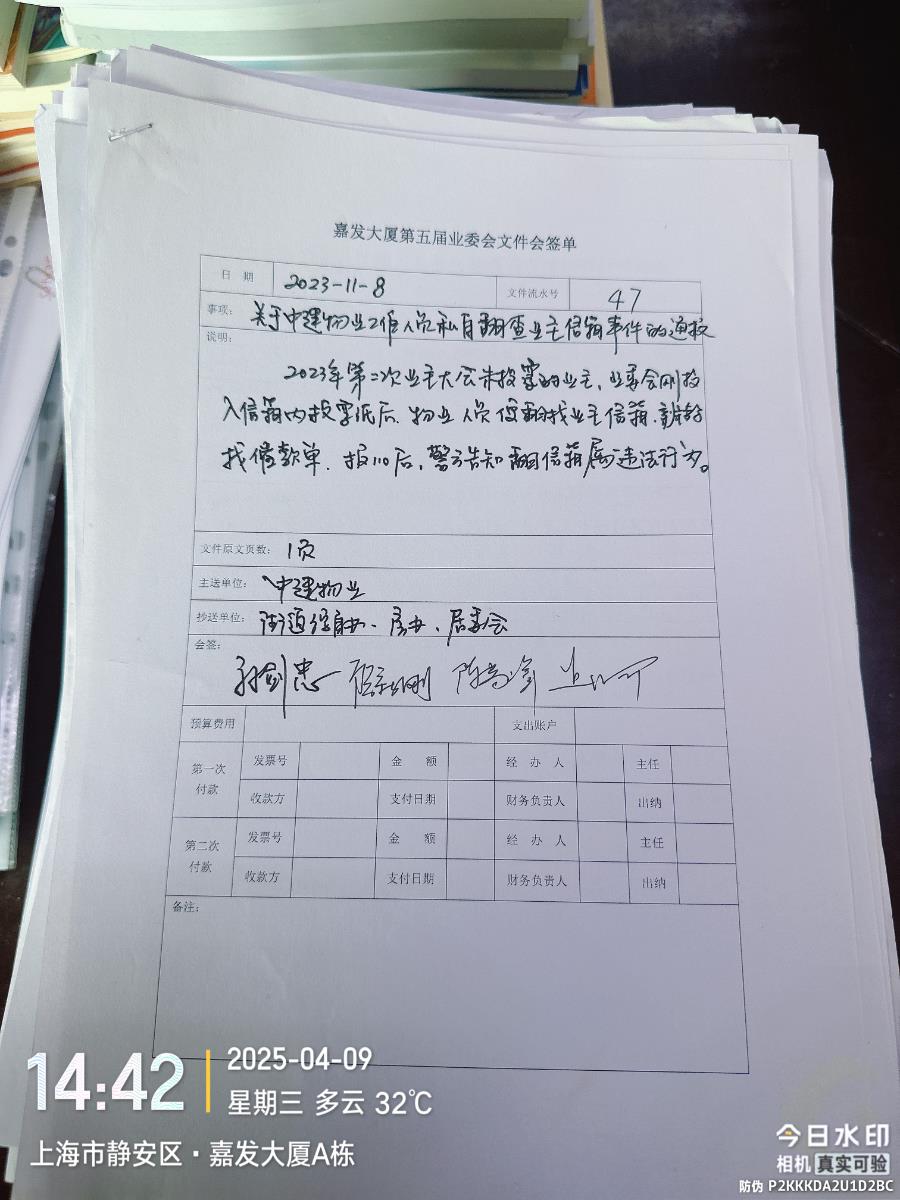 嘉发大厦第五届业委会文件会签单
日 期 2023-11-8 文件流水号 47
事项: 关于中建物业工作人员私自翻查业主信箱事件的通报
说明:
2023年第二次业主大会未投票的业主,业委会刚投
入信箱内投票纸后,物业人员便翻找业主信箱,
找催款单.报110后,警方告知翻信箱属违法行为。
文件原文页数: 1页
主送单位: 中建物业
抄送单位: 街道 房办、居委会
会签:
预算费用 支出账户
第一次付款 发票号 金 额 经 办 人 主任
收款方 支付日期 财务负责人 出纳
第二次付款 发票号 金 额 经 办 人 主任
收款方 支付日期 财务负责人 出纳
备注:
14:42 2025-04-09
星期三 多云 32℃
上海市静安区·嘉发大厦A栋
今日水印
相机 真实可验
防伪 P2KKKDA2U1D2BC